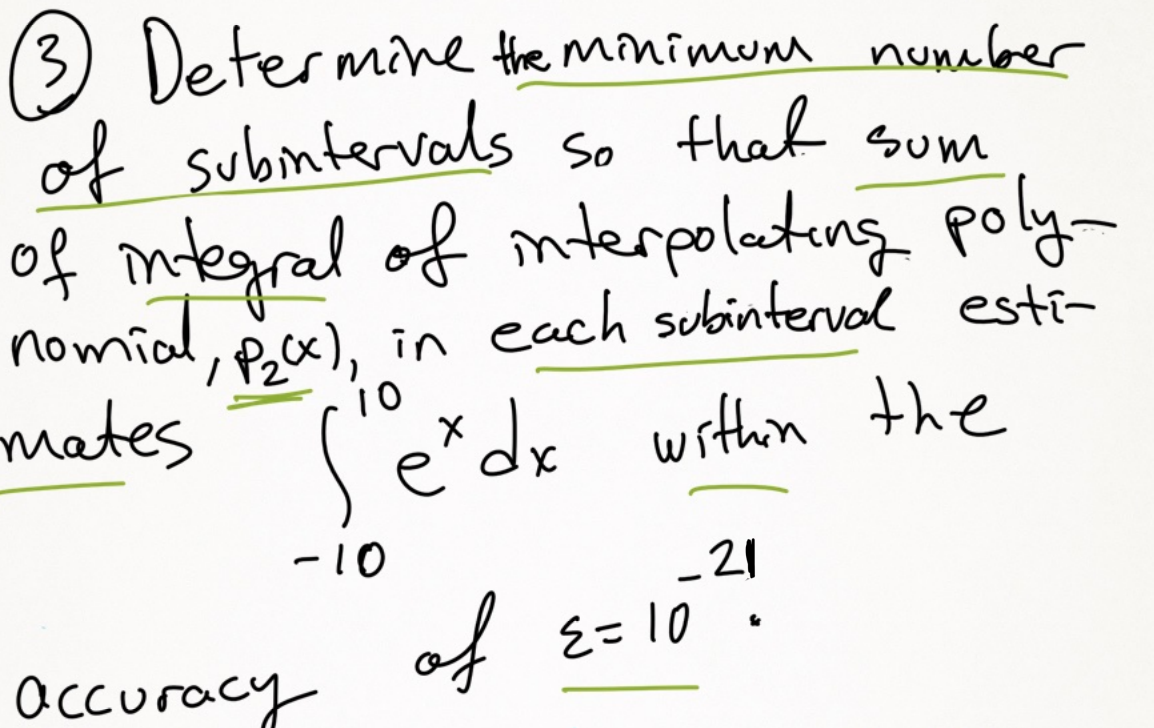 ③ Determine the minimum number
of subintervals so that sum
of integral of interpolating poly-
nomial, p₂(x), in each subinterval esti-
mates ∫₋₁₀¹⁰ eˣ dx within the
accuracy of ε = 10⁻²¹.